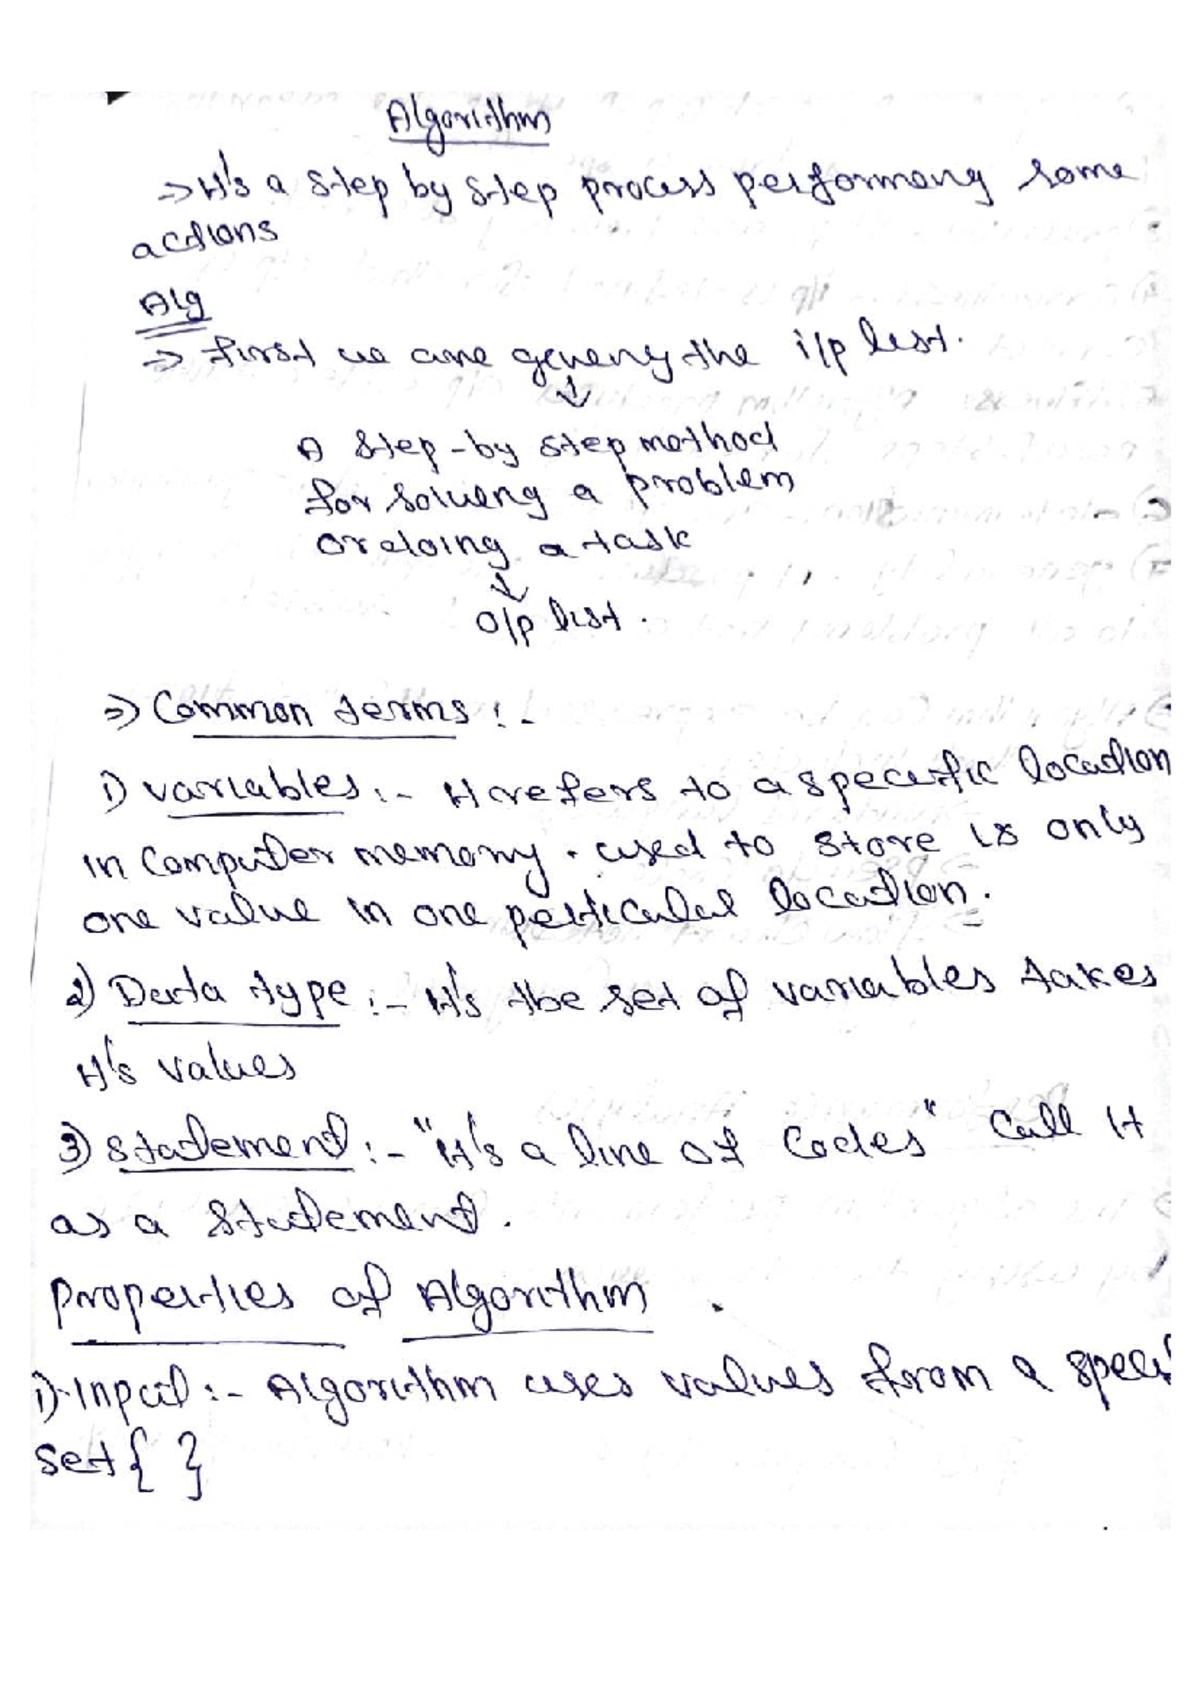 Algorithm
⇒ It's a step by step process performing some
actions
Alg
⇒ first we are giveny the i/p list.
↓
A step-by step method
for solving a problem
or doing a task
↓
o/p list.
⇒ Common terms :-
1) variables :- It refers to a specific location
in computer memory. used to store is only
one value in one perticular location.
2) Data type :- It's the set of variables takes
it's values
3) statement :- "It's a line of codes" call it
as a statement.
properties of Algorithm.
1) Input :- Algorithm uses values from a speci
set { }